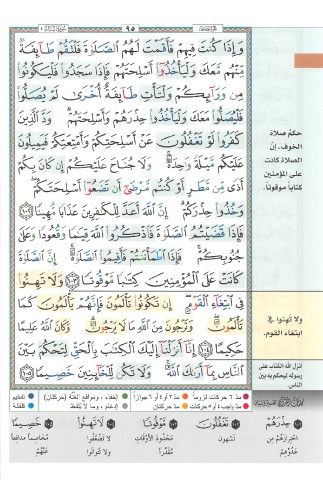 ٩٥
وَإِذَا كُنتَ فِيهِمْ فَأَقَمْتَ لَهُمُ الصَّلَاةَ فَلْتَقُمْ طَائِفَةٌ
مِّنْهُم مَّعَكَ وَلْيَأْخُذُوا أَسْلِحَتَهُمْ فَإِذَا سَجَدُوا فَلْيَكُونُوا
مِن وَرَائِكُمْ وَلْتَأْتِ طَائِفَةٌ أُخْرَىٰ لَمْ يُصَلُّوا
فَلْيُصَلُّوا مَعَكَ وَلْيَأْخُذُوا حِذْرَهُمْ وَأَسْلِحَتَهُمْ وَدَّ الَّذِينَ
كَفَرُوا لَوْ تَغْفُلُونَ عَنْ أَسْلِحَتِكُمْ وَأَمْتِعَتِكُمْ فَيَمِيلُونَ
عَلَيْكُم مَّيْلَةً وَاحِدَةً وَلَا جُنَاحَ عَلَيْكُمْ إِن كَانَ بِكُمْ
أَذًى مِّن مَّطَرٍ أَوْ كُنتُم مَّرْضَىٰ أَن تَضَعُوا أَسْلِحَتَكُمْ
وَخُذُوا حِذْرَكُمْ إِنَّ اللَّهَ أَعَدَّ لِلْكَافِرِينَ عَذَابًا مُّهِينًا ١٠٢
فَإِذَا قَضَيْتُمُ الصَّلَاةَ فَاذْكُرُوا اللَّهَ قِيَامًا وَقُعُودًا وَعَلَىٰ
جُنُوبِكُمْ فَإِذَا اطْمَأْنَنتُمْ فَأَقِيمُوا الصَّلَاةَ إِنَّ الصَّلَاةَ
كَانَتْ عَلَى الْمُؤْمِنِينَ كِتَابًا مَّوْقُوتًا ١٠٣ وَلَا تَهِنُوا
فِي ابْتِغَاءِ الْقَوْمِ إِن تَكُونُوا تَأْلَمُونَ فَإِنَّهُمْ يَأْلَمُونَ كَمَا
تَأْلَمُونَ وَتَرْجُونَ مِنَ اللَّهِ مَا لَا يَرْجُونَ وَكَانَ اللَّهُ عَلِيمًا
حَكِيمًا ١٠٤ إِنَّا أَنزَلْنَا إِلَيْكَ الْكِتَابَ بِالْحَقِّ لِتَحْكُمَ بَيْنَ
النَّاسِ بِمَا أَرَاكَ اللَّهُ وَلَا تَكُن لِّلْخَائِنِينَ خَصِيمًا ١٠٥
حكم صلاة
الخوف. إنّ
الصلاة كانت
على المؤمنين
كتاباً موقوتاً.
ولا تهنوا في
ابتغاء القوم.
أنزل الله الكتاب على
رسوله ليحكم به بين
الناس
مدّ ٦ حركات لزوماً مدّ ٢ أو ٤ أو ٦ جوازاً إخفاء، ومواقع الغُنَّة (حركتان) تفخيم
مدّ واجب ٤ أو ٥ حركات مدّ حركتان إدغام، وما لا يُلفظ قلقلة
حِذْرَهُمْ
احترازهم من
عدوّهم
تَغْفُلُونَ
تسهون
مَوْقُوتًا
محدود الأوقات
مقدّراً
لَا تَهِنُوا
لا تضعفوا
ولا تتوانوا
خَصِيمًا
مخاصماً مدافعاً
عنهم